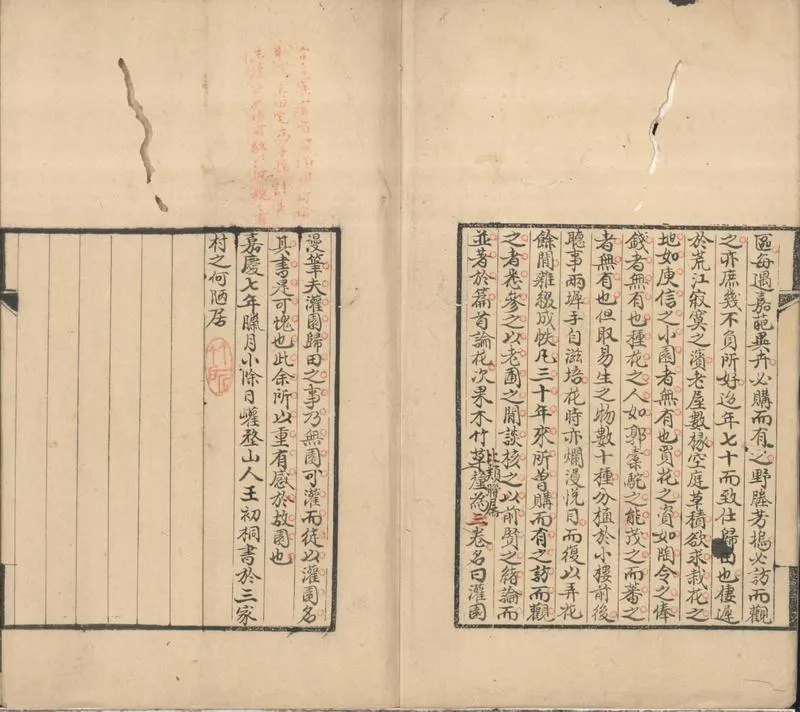 區每遇嘉葩異卉必購而有之野塍芳塢必訪而觀
之亦庶幾不負所好迨年七十而致仕歸田也棲遲
於荒江寂寞之濱老屋數椽空庭草積欲求栽花之
地如庾信之小園者無有也買花之資如陶令之俸
錢者無有也種花之人如郭橐駝之能茂之而蕃之
者無有也但取易生之物數十種分植於小樓前後
聽事兩墀手自滋培花時亦爛漫悅目而復以弄花
餘閒雜綴成帙凡三十年來所曾購而有之訪而觀
之者悉參之以老圃之閒談核之以前賢之緒論而
並著於篇首論花次果木竹草比類聯屬釐為三卷名曰灌園
漫筆夫灌園歸田之事乃無園可灌而徒以灌園名
其書是可愧也此余所以重有感於故園也
嘉慶七年臘月小除日巏堥山人王初桐書於三家
村之何陋居